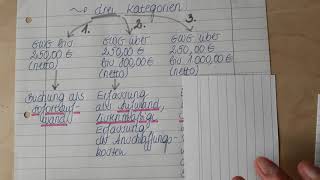 drei Kategorien
1. 2. 3.
GWG bis
250,00 €
(netto)
GWG über
250,00 €
bis 800,00 €
(netto)
GWG über
250,00 €
bis 1 000,00 €
(netto)
Buchung als
Sofortauf-
wand
Erfassung
als Aufwand,
Erfassung
der Anschaffungs-
kosten